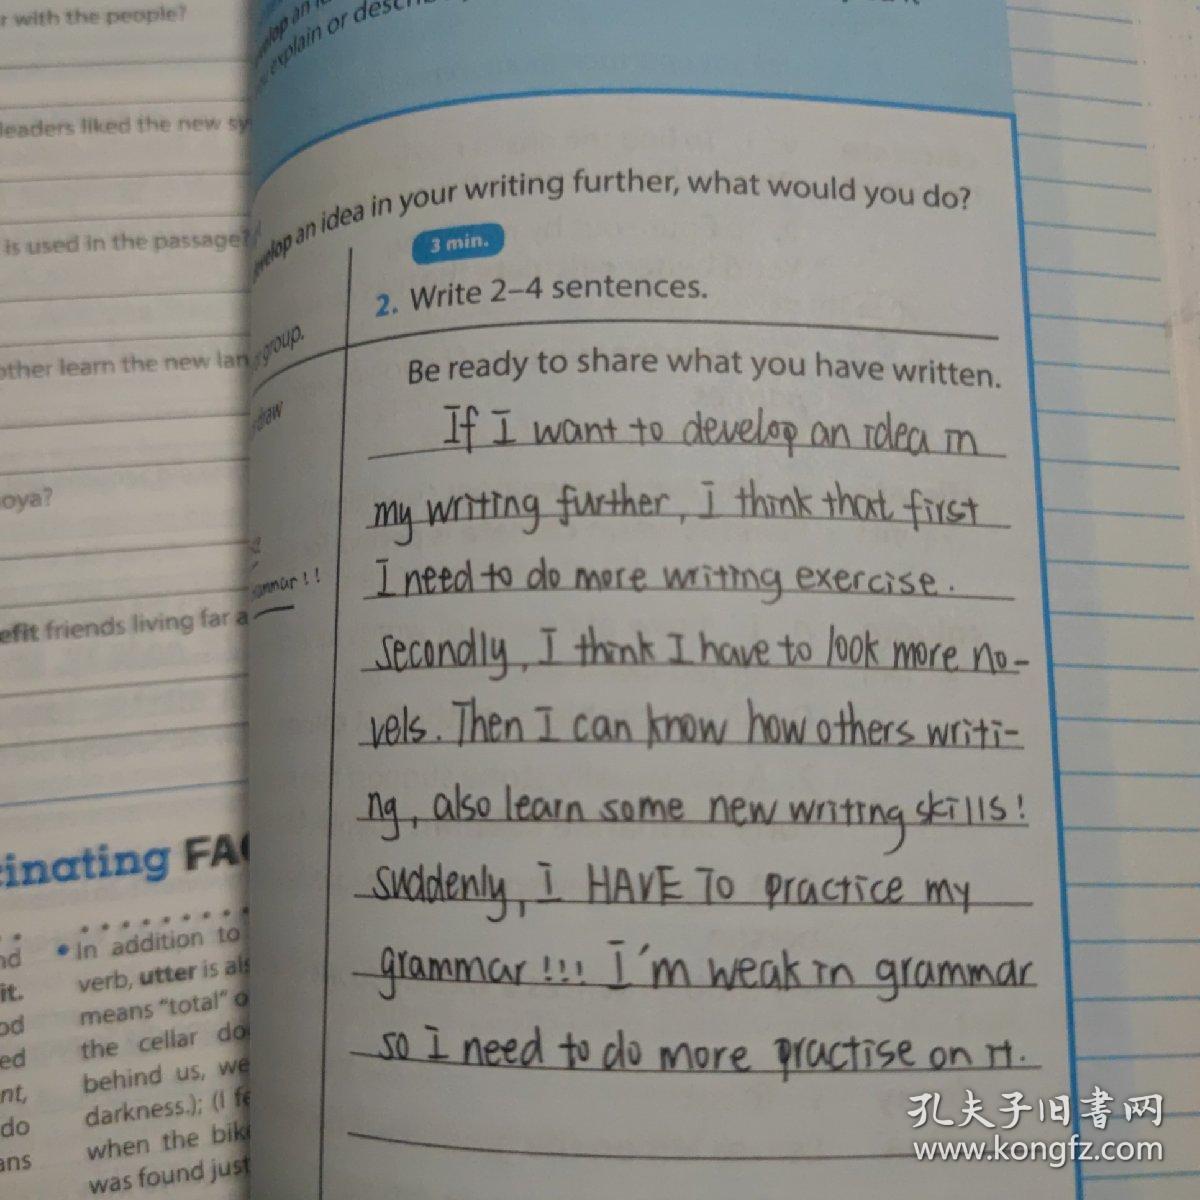 r with the people?
leaders liked the new sy
is used in the passage?
other learn the new lan
oya?
efit friends living far a
cinating FAC
nd
it.
od
ed
nt,
do
ans
• In addition to
verb, utter is als
means "total" o
the cellar do
behind us, we
darkness.); (I fe
when the bik
was found just
explain or describ
velop an idea in your writing further, what would you do?
3 min.
group.
draw
ammar!!
2. Write 2–4 sentences.
Be ready to share what you have written.
If I want to develop an idea in
my writing further, i think that first
I need to do more writing exercise.
secondly, I think I have to look more no-
vels. Then I can know how others writi-
ng, also learn some new writing skills!
suddenly, i HAVE TO practice my
grammar!!! I'm weak in grammar
so I need to do more practise on it.
孔夫子旧书网
www.kongfz.com